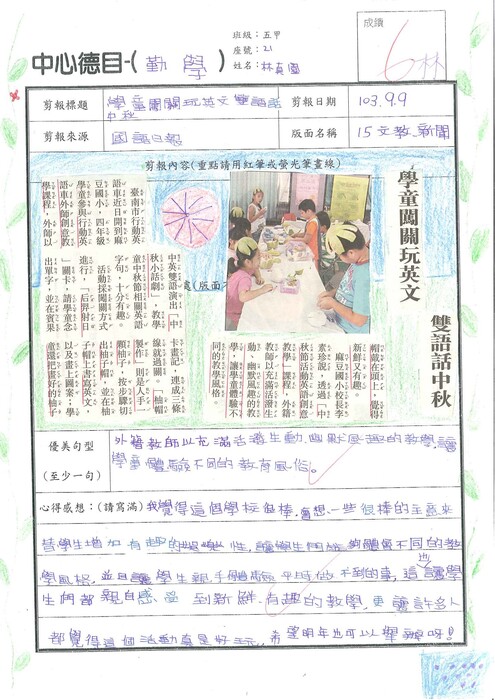 班級：五甲
座號：21
姓名：林
成績
6
林
中心德目-(勤學)
剪報標題
學童闖關玩英文雙語話中秋
剪報日期
103.9.9
剪報來源
國語日報
版面名稱
15文教新聞
剪報內容(重點請用紅筆或螢光筆畫線)
學童闖關玩英文 雙語話中秋
臺南市行動英
語車近日開到麻
豆國小，四年級
學童參與行動英
語車外師創意教
學課程，外師以
中英雙語演出「中
秋小話劇」，教學
童中秋節相關英語
字句，十分有趣。
活動採闖關方式
進行，「后羿射日
」關卡，請學童念
出單字，並在賓果
卡畫記，連成三條
線就過關。「柚帽
製作」則是人手一
顆柚子，按步驟切
出柚子帽，並在柚
子帽上寫英文
以及畫上圖案；學
童還把畫好的柚子
帽戴在頭上，覺得
新鮮又有趣。
麻豆國小校長李
素珍說，透過「中
秋節活動英語創意
教學」課程，外籍
教師以充滿活潑生
動、幽默風趣的教
學，讓學童體驗不
同的教學風格。
(版面
優美句型
(至少一句)
外籍教師以充滿活潑生動幽默風趣的教學，讓
學童體驗不同的教育風俗。
心得感想：(請寫滿)我覺得這個學校很棒，會想一些很棒的主意來
替學生增加有趣的娛樂性，讓學生們能夠體會不同的教
學風格，並且讓學生親手體驗平時做不到的事，這也讓學
生們都親自感受到新鮮、有趣的教學，更讓許多人
都覺得這個活動真是好玩，希望明年也可以舉辦呀！